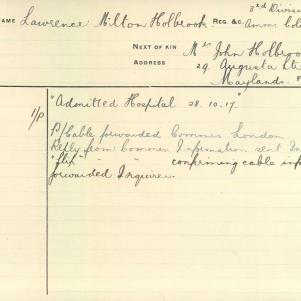 3rd Division
NAME Lawrence Milton Holbrook REG. &C. Amm. Col
NEXT OF KIN Mr John Holbroo
ADDRESS 29 Augusta St
Maylands. F
"Admitted Hospital 28.10.17."
1/P P/Cable forwarded Commes London.
Reply from Commes Information sent In
" " " confirming cable inf
forwarded Inquirer.